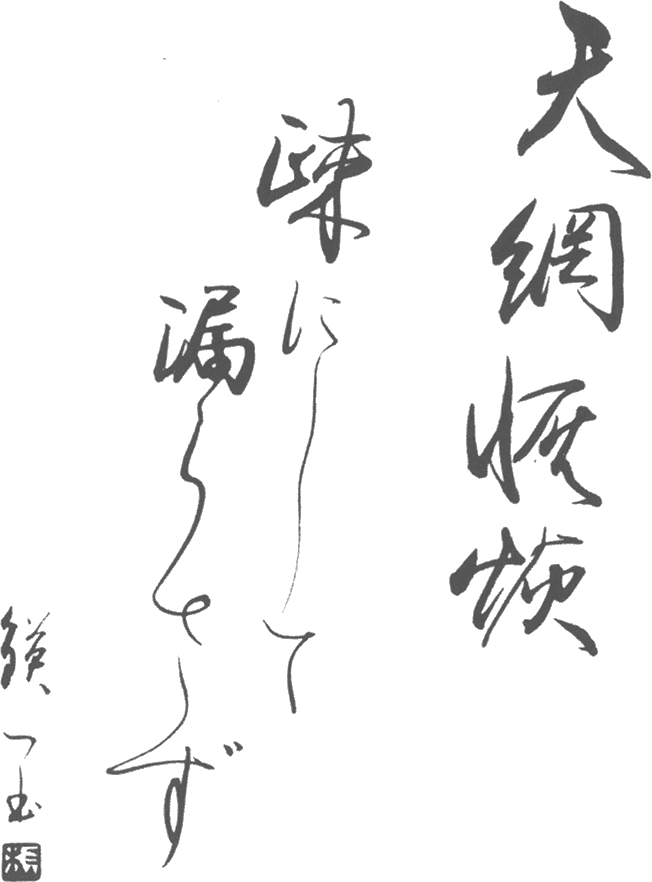 天網恢恢
疎にして
漏らさず
鍈一書